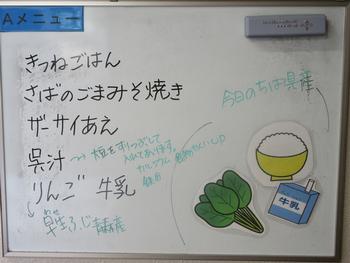 Aメニュー
きつねごはん
さばのごまみそ焼き
ザーサイあえ
呉汁 → 大豆をすりつぶして
入れてあります。
カルシウム
りんご 牛乳
ふじ 青森産
今日のちば県産
牛乳